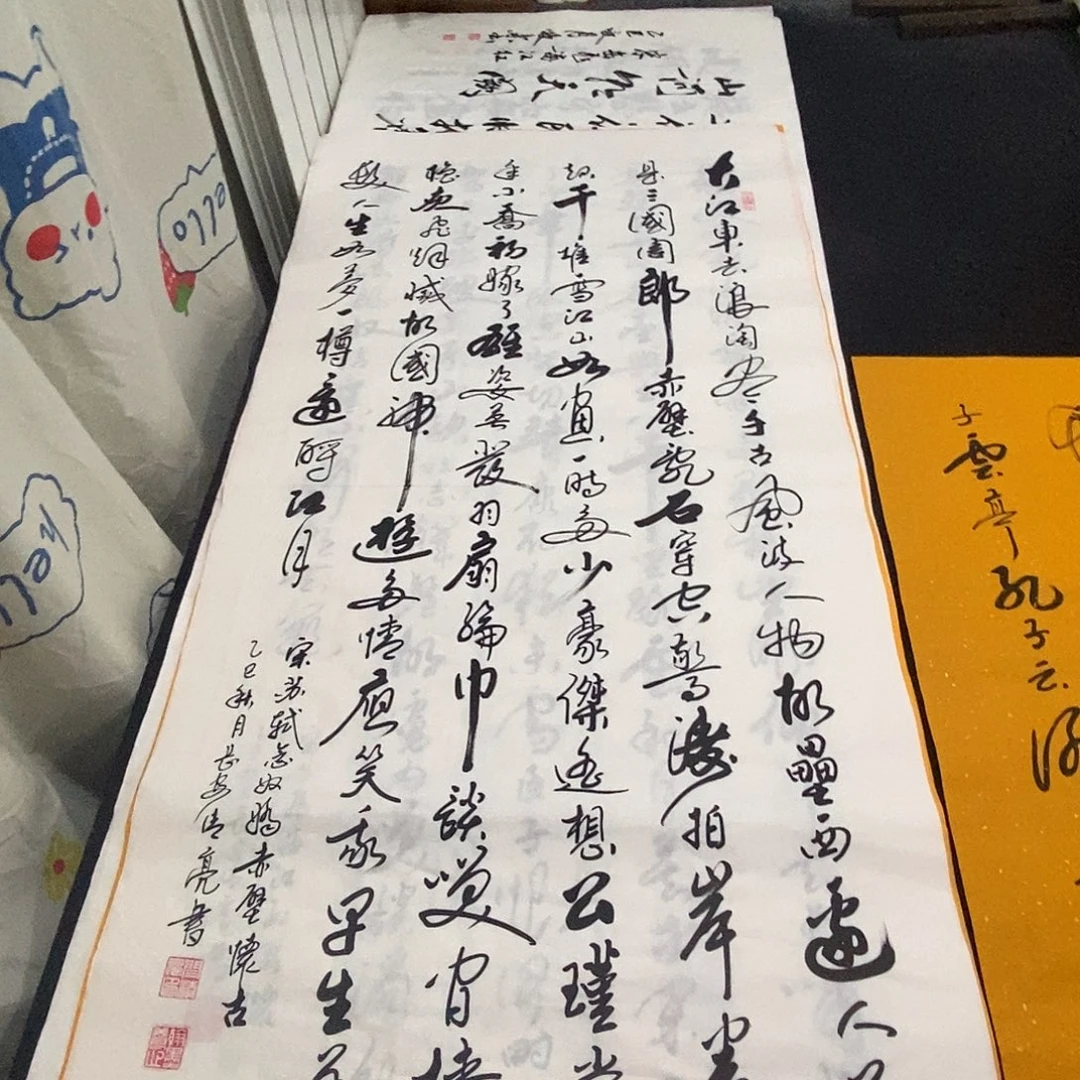 大江東去浪淘尽千古風流人物故壘西邊人
是三國周郎赤壁亂石穿空驚濤拍岸卷
起千堆雪江山如畫一時多少豪傑遥想公瑾當
年小喬初嫁了雄姿英發羽扇綸巾談笑間檣
櫓灰飛烟滅故國神遊多情應笑我早生
髮人生如夢一樽還酹江月
宋苏轼念奴嬌赤壁懷古
乙巳秋月長安清亮書
子雲亭孔子云何